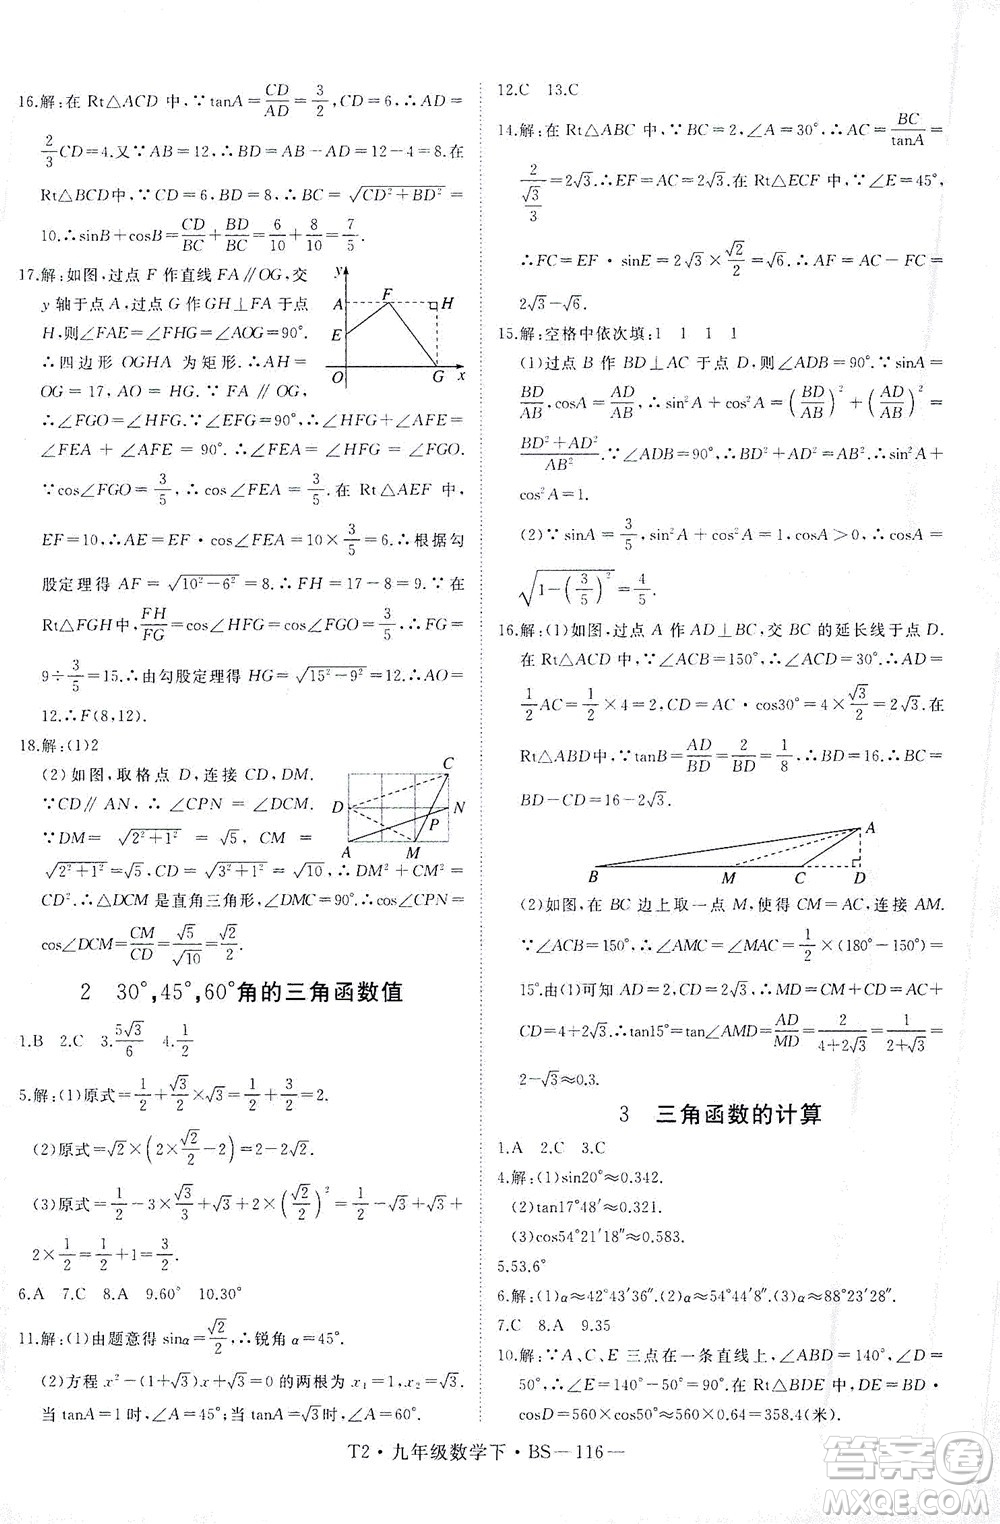 16.解:在 Rt△ACD 中,∵tanA=CD/AD=3/2,∴AD=
2/3CD=4.又∵AB=12,∴BD=AB-AD=8.在
Rt△BCD中,∵CD=6,BD=8,∴BC=√(CD²+BD²)=
10.∴sinB+cosB=CD/BC+BD/BC=6/10+8/10=7/5.
17.解:如图,过点 F 作直线 FA∥OG,交
y 轴于点 A,过点 G 作 GH⊥FA 于点
H,则∠FAE=∠FHG=∠OAF=90°.
∴四边形 OGHA 为矩形.∴AH=
OG=17,AO=HG.∵FA∥OG,
∴∠FGO=∠HFG.∵∠EFG=90°,∴∠HFG+∠AFE=
∠FEA+∠AFE=90°.∴∠FEA=∠HFG=∠FGO.
∵cos∠FGO=3/5,∴cos∠FEA=3/5.在 Rt△AEF 中,
EF=10,∴AE=EF·cos∠FEA=10×3/5=6.∴根据勾
股定理得 AF=√(10²-6²)=8.∴FH=17-8=9.在
Rt△FGH中,∵FH/FG=cos∠HFG=cos∠FGO=3/5,∴FG=
9÷3/5=15.∴由勾股定理得 HG=√(15²-9²)=12.∴AO=
12.∴F(8,12).
y
A
F
H
E
O
G
x
18.解:(1)2
(2)如图,取格点 D,连接 CD,DM.
∵CD∥AN,∴∠CPN=∠DCM.
∵DM=√(2²+1²)=√5,CM=
√(2²+1²)=√5,CD=√(3²+1²)=√10,∴DM²+CM²=
CD².∴△DCM 是直角三角形,∠DMC=90°.∴cos∠CPN=
cos∠DCM=CM/CD=√5/√10=√2/2.
C
D
N
P
A
M
2 30°,45°,60°角的三角函数值
1.B 2.C 3.5√3/6 4.1/2
5.解:(1)原式=1/2+√3/2×√3=1/2+3/2=2.
(2)原式=√2×(2×√2/2-2)=2-2√2.
(3)原式=1/2-3×√3/3+√3+2×(√2/2)²=1/2-√3+√3+
2×1/2=1/2+1=3/2.
6.A 7.C 8.A 9.60° 10.30°
11.解:(1)由题意得 sinα=√2/2,∴锐角 α=45°.
(2)方程 x²-(1+√3)x+√3=0的两根为 x₁=1,x₂=√3.
当 tanA=1 时,∠A=45°;当 tanA=√3时,∠A=60°.
12.C 13.C
14.解:在 Rt△ABC 中,∵BC=2,∠A=30°,∴AC=BC/tanA=
2/(√3/3)=2√3.∴EF=AC=2√3.在 Rt△ECF 中,∵∠E=45°,
∴FC=EF·sinE=2√3×√2/2=√6.∴AF=AC-FC=
2√3-√6.
15.解:空格中依次填:1 1 1 1
(1)过点 B 作 BD⊥AC 于点 D,则∠ADB=90°.∵sinA=
BD/AB,cosA=AD/AB,∴sin²A+cos²A=(BD/AB)²+(AD/AB)²=
(BD²+AD²)/AB².∵∠ADB=90°,∴BD²+AD²=AB².∴sin²A+
cos²A=1.
(2)∵sinA=3/5,sin²A+cos²A=1,cosA>0,∴cosA=
√(1-(3/5)²)=4/5.
16.解:(1)如图,过点 A 作 AD⊥BC,交 BC 的延长线于点 D.
在 Rt△ACD 中,∵∠ACB=150°,∴∠ACD=30°.∴AD=
1/2AC=1/2×4=2,CD=AC·cos30°=4×√3/2=2√3.在
Rt△ABD中,∵tanB=AD/BD=2/BD=1/8,∴BD=16.∴BC=
BD-CD=16-2√3.
A
B
M
C
D
(2)如图,在 BC 边上取一点 M,使得 CM=AC,连接 AM.
∵∠ACB=150°,∴∠AMC=∠MAC=1/2×(180°-150°)=
15°.由(1)可知 AD=2,CD=2√3,∴MD=CM+CD=AC+
CD=4+2√3.∴tan15°=tan∠AMD=AD/MD=2/(4+2√3)=1/(2+√3)=
2-√3≈0.3.
3 三角函数的计算
1.A 2.C 3.C
4.解:(1)sin20°≈0.342.
(2)tan17°48′≈0.321.
(3)cos54°21′18″≈0.583.
5.53.6°
6.解:(1)α≈42°43′8″.(2)α≈77°16′43″.(3)α≈88°23′27″.
7.C 8.A 9.35
10.解:∵A、C、E 三点在一条直线上,∠ABD=140°,∠D=
50°,∴∠E=140°-50°=90°.在 Rt△BDE 中,DE=BD·
cosD=560×cos50°≈560×0.64=358.4(米).
T2·九年级数学下·BS—116—
答案圈
MXQE.COM